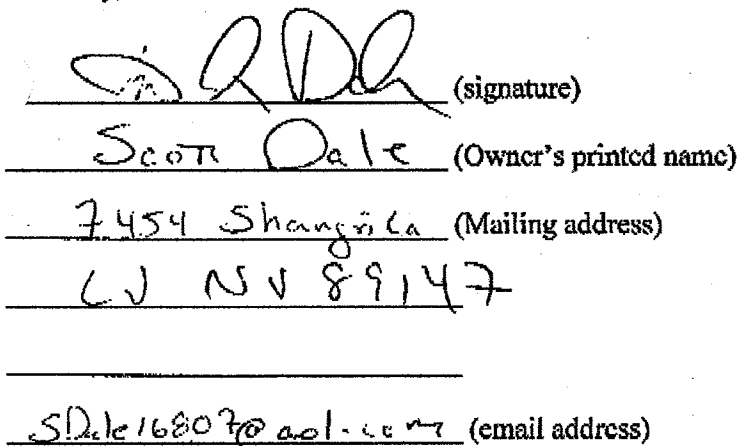 (signature)
Scott Dale (Owner's printed name)
7454 Shangrila (Mailing address)
LV NV 89147
SDale16807@aol.com (email address)